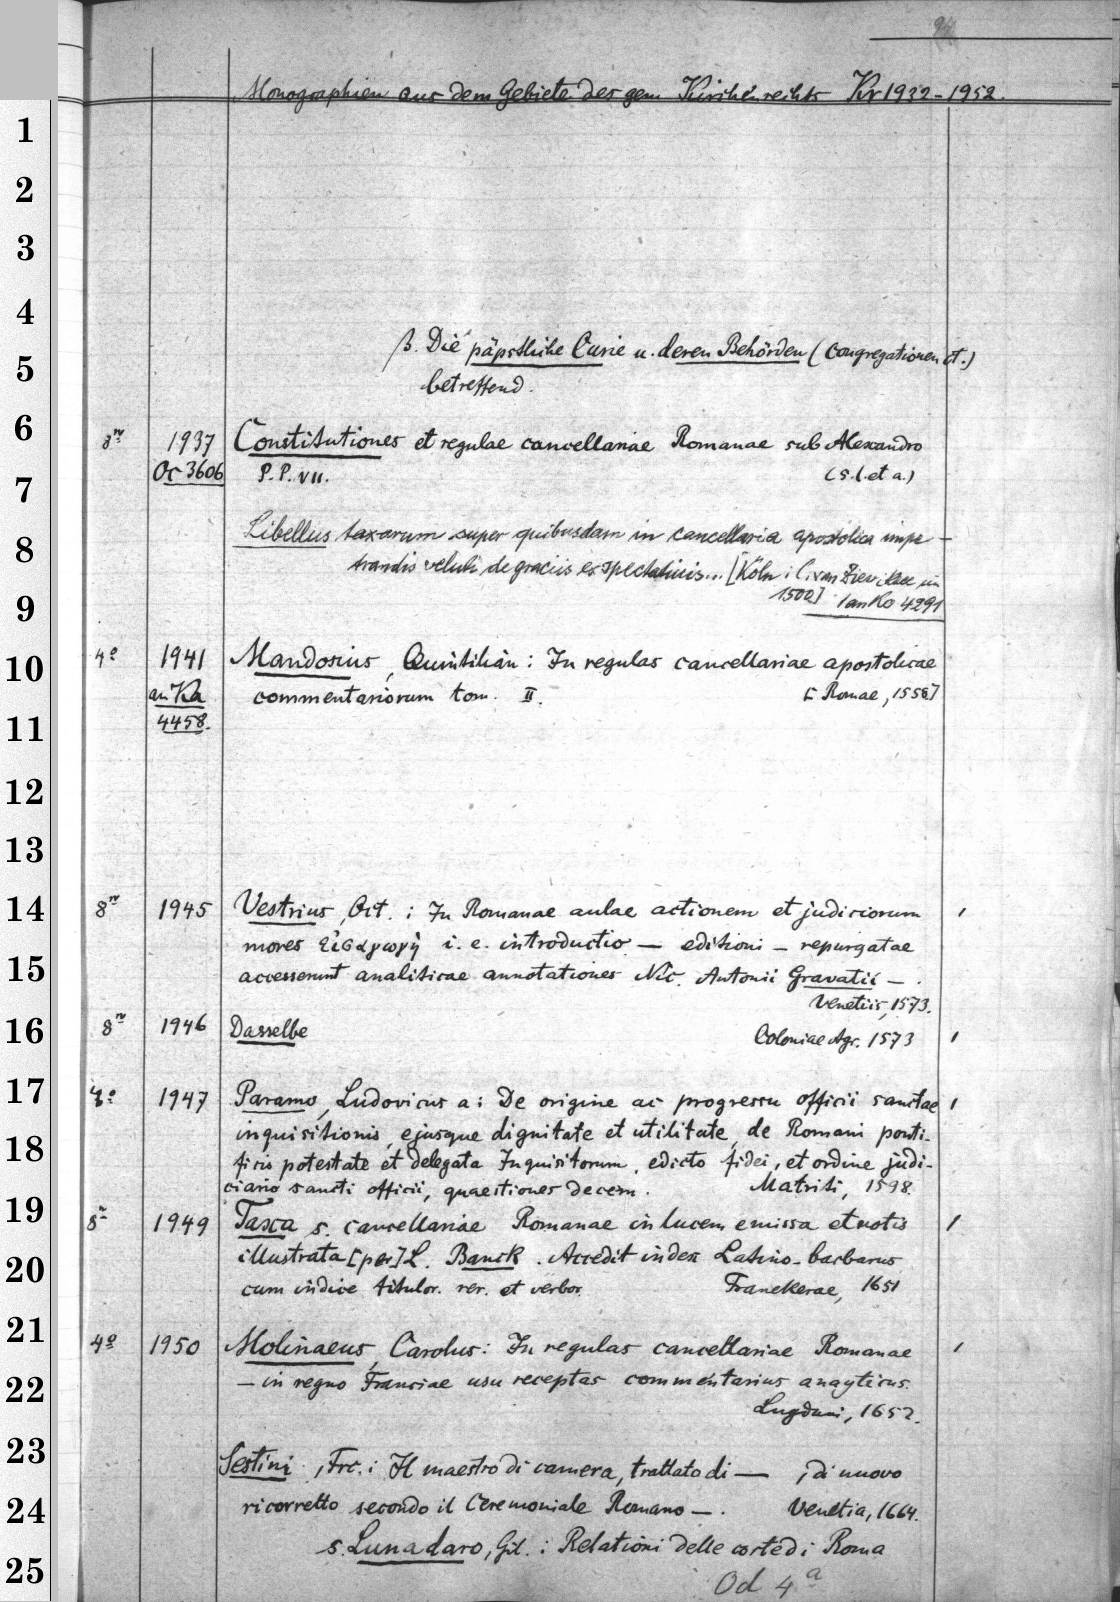 94
Monographien aus dem Gebiete des gem. Kirchenrechts Kr 1932-1952.
1
2
3
4
β. Die päpstliche Curie u. deren Behörden (Congregationen et.)
5
betreffend.
6
8º 1937 Constitutiones et regulae cancellariae Romanae sub Alexandro
7
Oc 3606 P. P. VII. (s. l. et a.)
8
Libellus taxarum super quibusdam in cancellaria apostolica impe-
trandis veluti de graciis expectativis... [Köln: C. van Zierikzee um
9
1500] an Ko 4291
10
4º 1941 Mandosius, Quintilian: In regulas cancellariae apostolicae
an Ka commentariorum tom. II. [Romae, 1558]
11
4458.
12
13
14
8º 1945 Vestrius, Oct.: In Romanae aulae actionem et judiciorum
mores εἰσαγωγὴ i. e. introductio — editioni — repurgatae
15
accesserunt analiticae annotationes Nic. Antonii Gravatii —.
Venetiis, 1573.
16
8º 1946 Dasselbe Coloniae Agr. 1573
17
4º 1947 Paramo, Ludovicus a: De origine ac progressu officii sanctae
18
inquisitionis, ejusque dignitate et utilitate, de Romani ponti-
ficis potestate et delegata Inquisitorum, edicto fidei, et ordine judi-
ciario sancti officii, quaestiones decem. Matriti, 1598.
19
8º 1949 Taxa s. cancellariae Romanae in lucem emissa et notis
20
illustrata [per] L. Banck. Accedit index Latino-barbarus
cum indice titulor. rer. et verbor. Franekerae, 1651
21
4º 1950 Molinaeus, Carolus: In regulas cancellariae Romanae
22
— in regno Franciae usu receptas commentarius anayticus.
Lugduni, 1652.
23
Sestini, Frc.: Il maestro di camera, trattato di —, di nuovo
24
ricorretto secondo il Ceremoniale Romano —. Venetia, 1664.
s. Lunadaro, Gil.: Relationi delle corte di Roma
25
Od 4ª